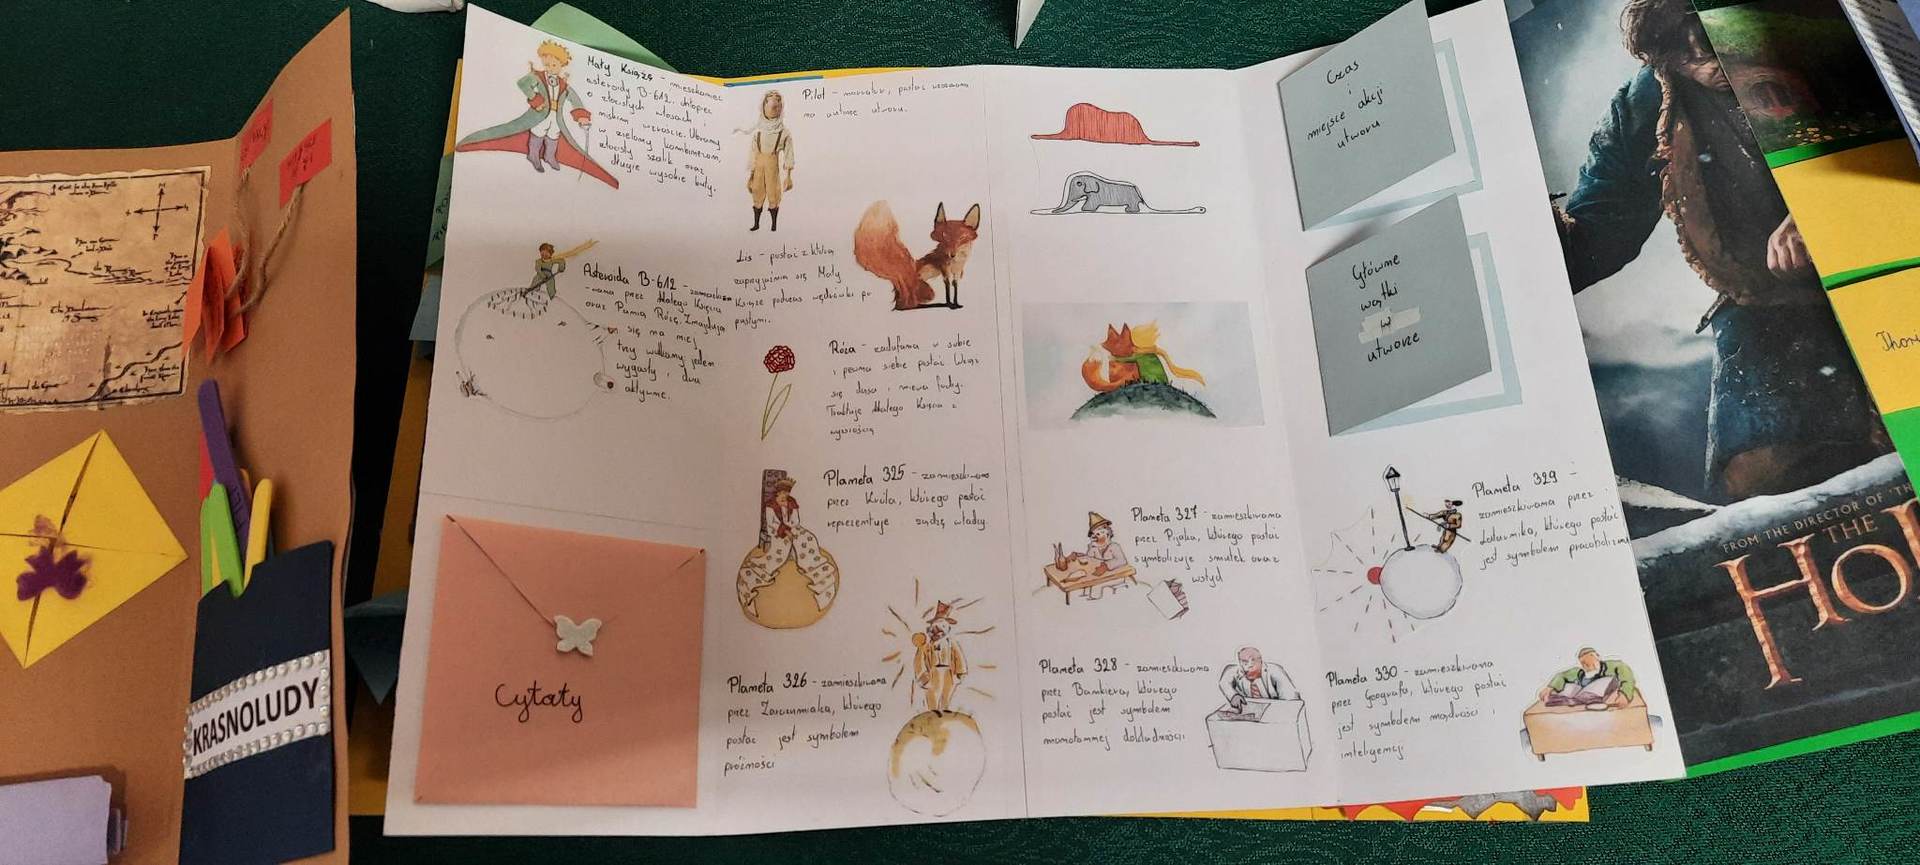 Mały Książę - mieszkaniec
asteroidy B-612, chłopiec
o złocistych włosach i
niskim wzroście. Ubrany
w zielony kombinezon,
złocisty szalik oraz
długie wysokie buty.
Asteroida B-612 - zamieszki-
-wana przez Małego Księcia
oraz Panią Różę. Znajdują
się na niej
trzy wulkany: jeden
wygasły i dwa
aktywne.
Cytaty
Pilot - narrator, postać wzorowana
na autorze utworu.
Lis - postać z którą
zaprzyjaźnia się Mały
Książę podczas wędrówki po
pustyni.
Róża - zadufana w sobie
i pewna siebie postać. Wciąż
się dąsa i miewa fochy.
Traktuje Małego Księcia z
wyższością
Planeta 325 - zamieszkiwana
przez Króla, którego postać
reprezentuje żądzę władzy.
Planeta 326 - zamieszkiwana
przez Zarozumialca, którego
postać jest symbolem
próżności
Planeta 327 - zamieszkiwana
przez Pijaka, którego postać
symbolizuje smutek oraz
wstyd
Planeta 328 - zamieszkiwana
przez Bankiera, którego
postać jest symbolem
monotonnej dokładności.
Czas
i
miejsce akcji
utworu
Główne
wątki
w
utworze
Planeta 329 -
zamieszkiwana przez
Latarnika, którego postać
jest symbolem pracoholizmu
Planeta 330 - zamieszkiwana
przez Geografa, którego postać
jest symbolem mądrości i
inteligencji
KRASNOLUDY
FROM THE DIRECTOR OF
THE